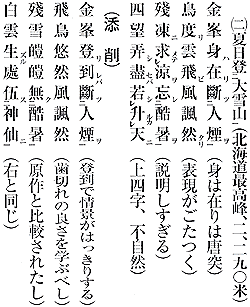 ㈡夏日登大雪山(北海道最高峰 二、二九〇米)
金峯身在斷人煙(身は在りは唐突)
鳥度雲飛風颯然(表現がごたつく)
残雪涼忘酷暑(説明しすぎる)
四望弄盡若升天(上四字、不自然)
(添削)
金峯登到斷人煙(登到で情景がはっきりする)
飛鳥悠然風颯然(歯切れの良さを学ぶべし)
残雪皚皚無酷暑(原作と比較されたし)
白雲生處伍神仙(右と同じ)